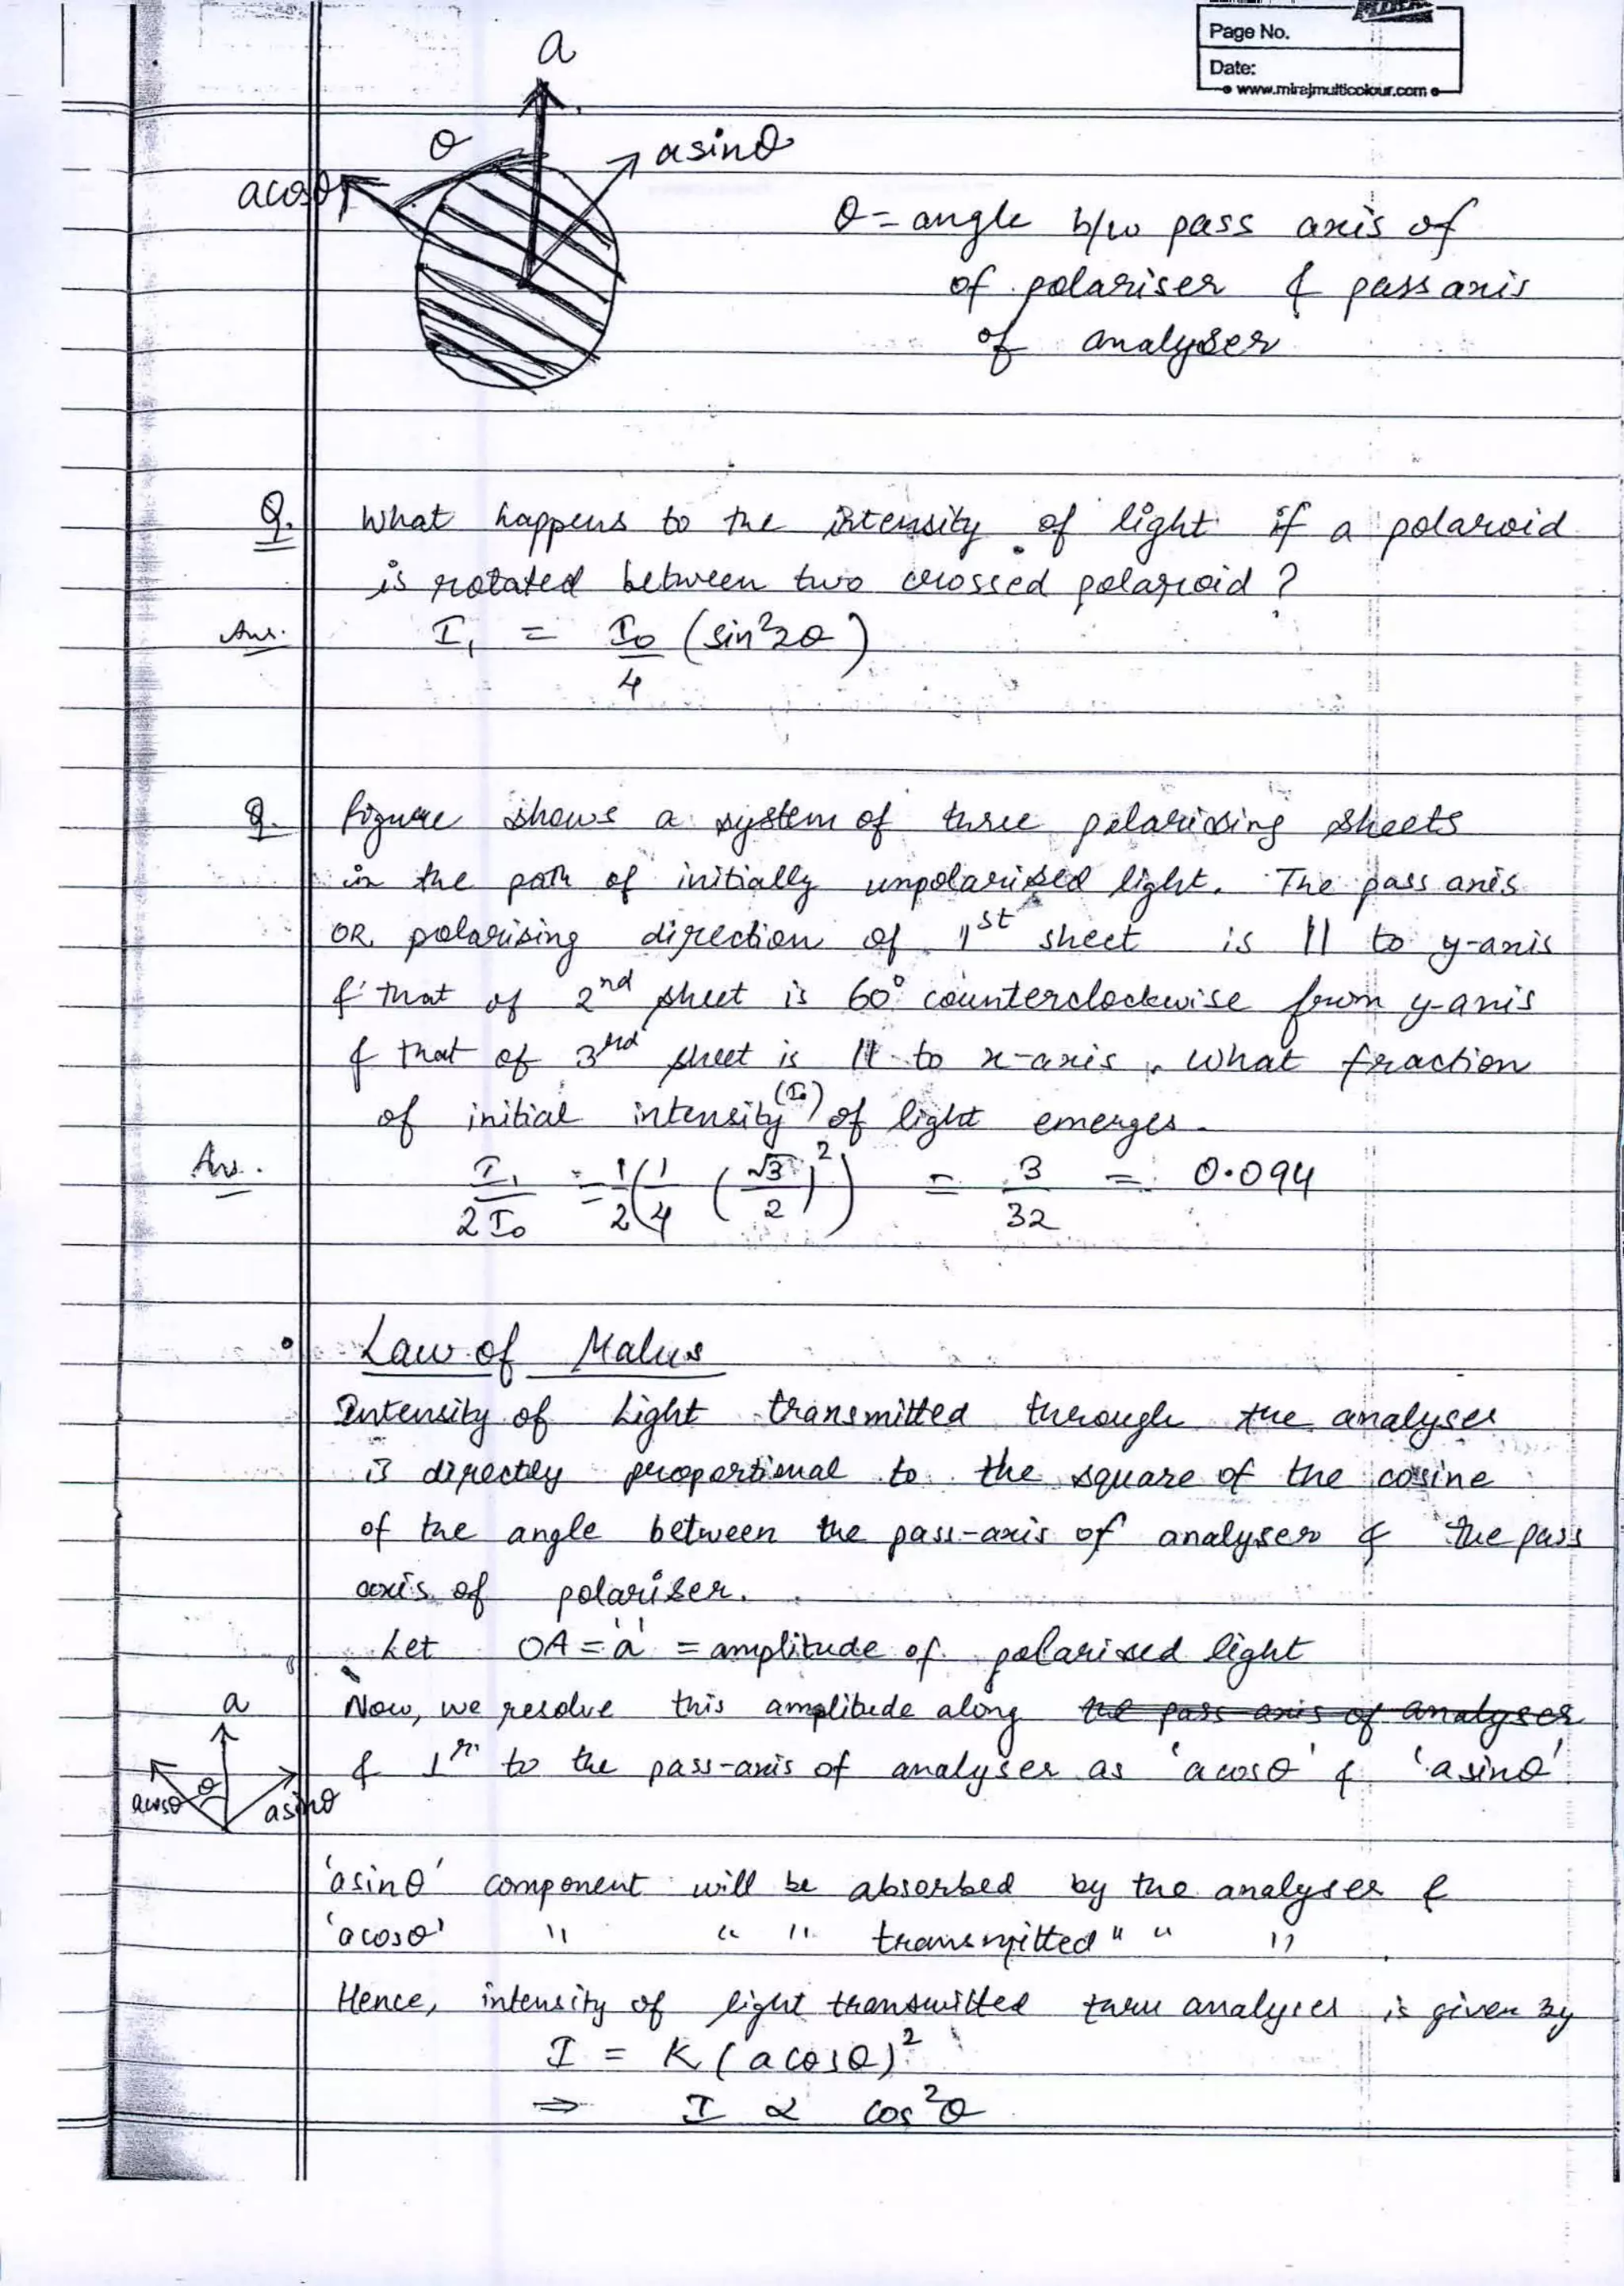 Page No.
Date:
www.mirajmulticolour.com
a
θ
acosθ
asinθ
θ = angle b/w pass axis of
of polariser & pass axis
of analyser
Q. What happens to the intensity of light if a polaroid
is rotated between two crossed polaroid ?
Ans. I₁ = I₀/4 (sin²2θ)
Q. figure shows a system of three polarising sheets
in the path of initially unpolarised light. The pass axis
OR polarising direction of 1st sheet is || to y-axis
& that of 2nd sheet is 60° counterclockwise from y-axis
& that of 3rd sheet is || to x-axis. What fraction
of initial intensity (I₀) of light emerges.
Ans. I₁/2I₀ = 1/2 (1/4 (√3/2)²) = 3/32 = 0.094
• Law of Malus
Intensity of Light transmitted through the analyser
is directly proportional to the square of the cosine
of the angle between the pass-axis of analyser & the pass
axis of polariser.
Let OA = 'a' = amplitude of polarised light
Now, we resolve this amplitude along the pass axis of analyser
& ⊥r to the pass-axis of analyser as 'acosθ' & 'asinθ'
a
θ
acosθ
asinθ
'asinθ' component will be absorbed by the analyser &
'acosθ' " " " transmitted " " "
Hence, intensity of light transmitted thru analyser is given by
I = K (acosθ)²
⇒ I ∝ cos²θ